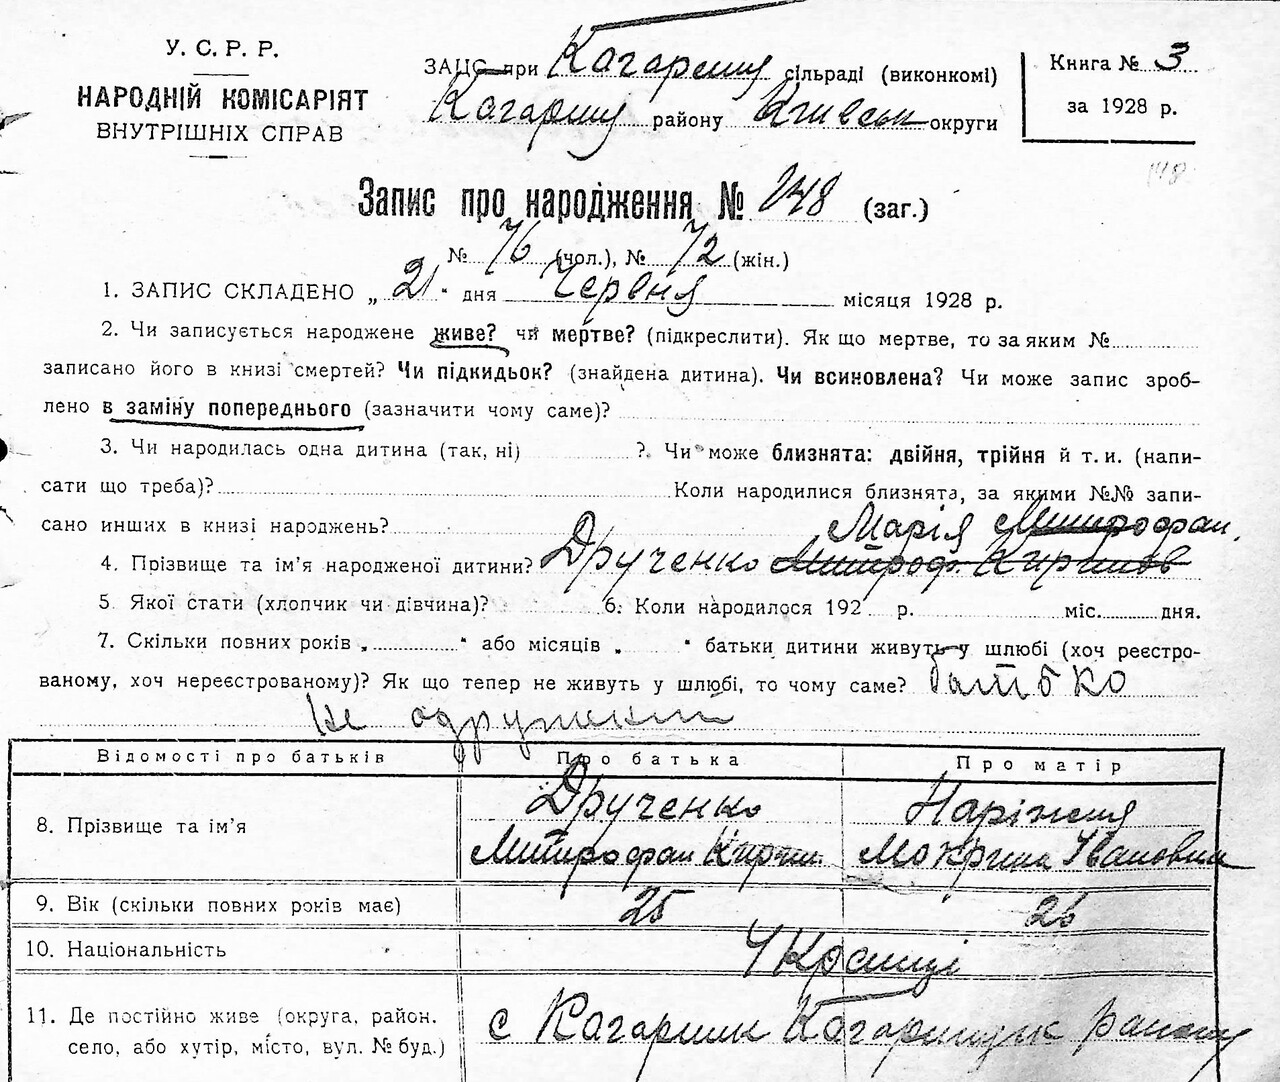 У. С. Р. Р.
НАРОДНІЙ КОМІСАРІЯТ
ВНУТРІШНІХ СПРАВ
ЗАЦС при Кагарлиц сільраді (виконкомі)
Кагарлиц району Київськ округи
Книга № 3
за 1928 р.
148
Запис про народження № 148 (заг.)
№ 76 (чол.), № 72 (жін.)
1. ЗАПИС СКЛАДЕНО „ 21 " дня Червня місяця 1928 р.
2. Чи записується народжене живе? чи мертве? (підкреслити). Як що мертве, то за яким №
записано його в книзі смертей? Чи підкидьок? (знайдена дитина). Чи всиновлена? Чи може запис зроб-
лено в заміну попереднього (зазначити чому саме)?
3. Чи народилась одна дитина (так, ні) ?. Чи може близнята: двійня, трійня й т. и. (напи-
сати що треба)? Коли народилися близнята, за якими №№ запи-
сано инших в книзі народжень?
Марія Митрофан.
4. Прізвище та ім'я народженої дитини? Друченко Митроф. Кирилов
5. Якої стати (хлопчик чи дівчина)? 6. Коли народилося 192 р. міс. дня.
7. Скільки повних років „ " або місяців „ " батьки дитини живуть у шлюбі (хоч реєстро-
ваному, хоч нереєстрованому)? Як що тепер не живуть у шлюбі, то чому саме? батько
не одружений
Відомості про батьків Про батька Про матір
8. Прізвище та ім'я Друченко Митрофан Кирил. Наріжная Мокрина Ивановна
9. Вік (скільки повних років має) 25 26
10. Національність Українці
11. Де постійно живе (округа, район.
село, або хутір, місто, вул. № буд.) с Кагарлик Кагарлицьк району